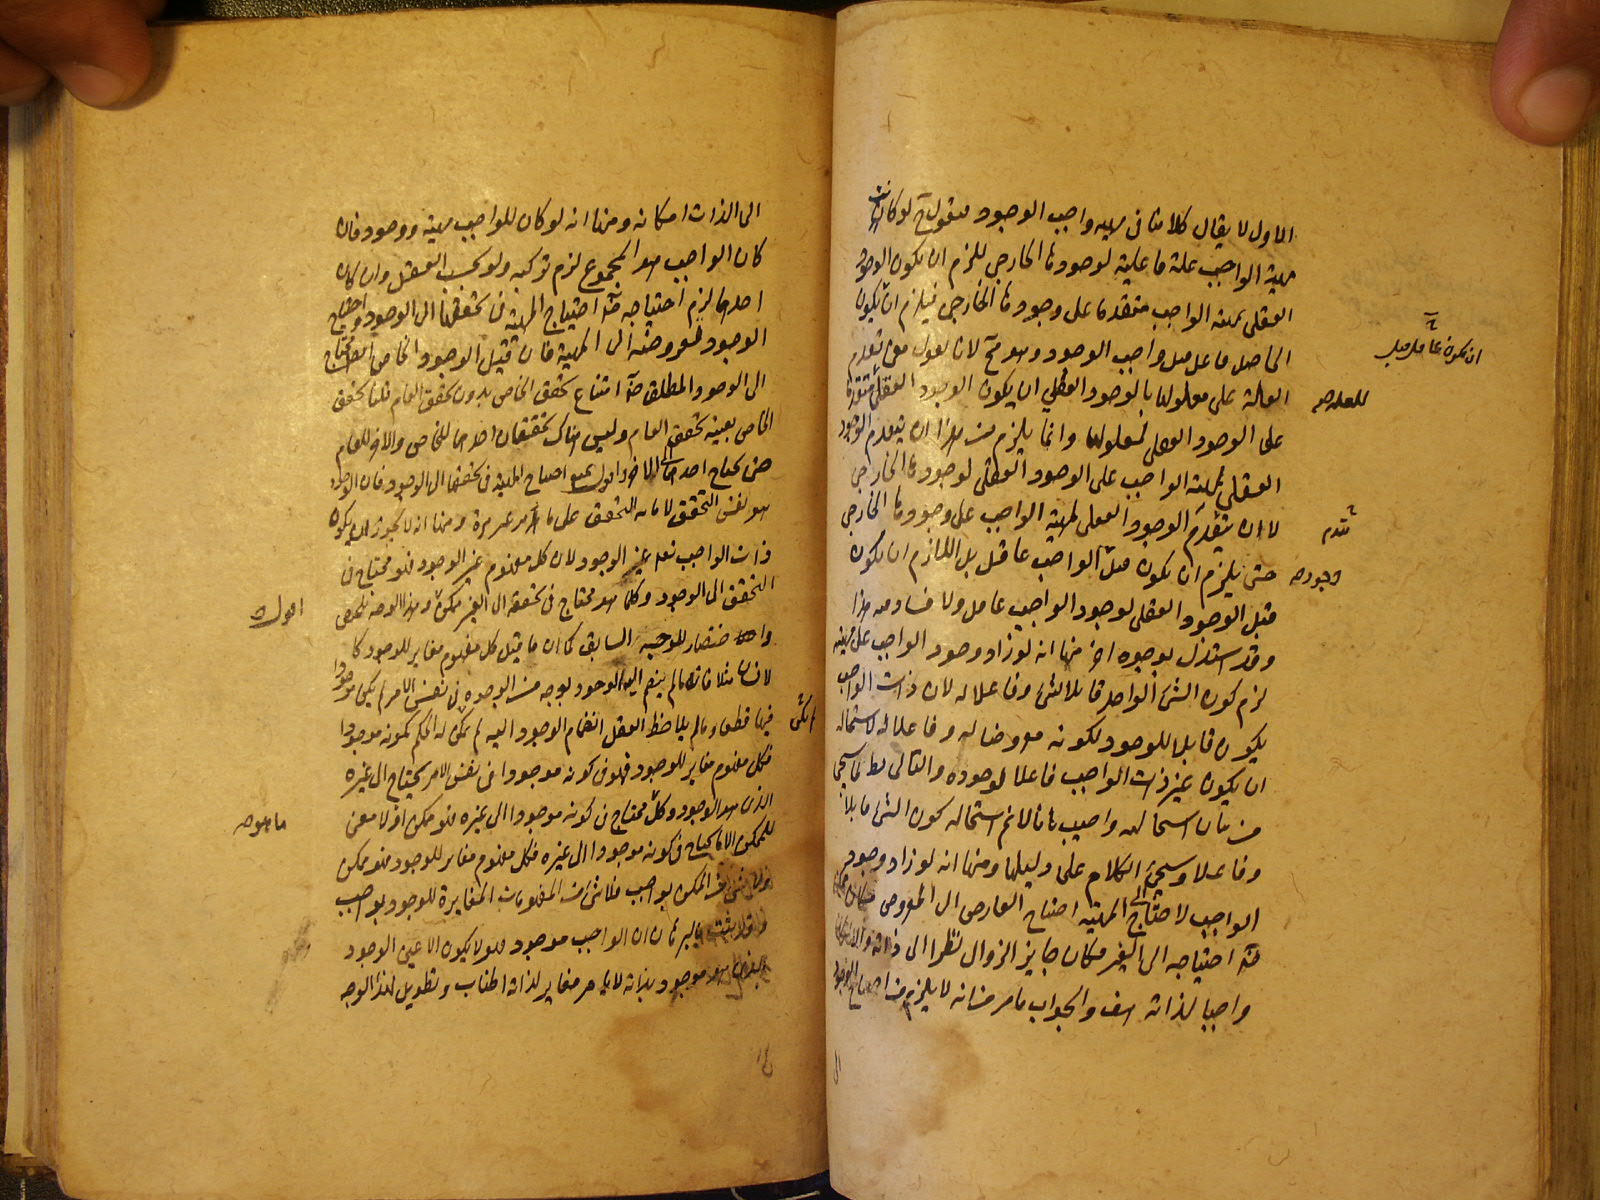 الاول لا يقال كلامنا فى مهية واجب الوجود فنقول لو كانت
مهية الواجب علة فاعلية لوجودها الخارجى للزم ان يكون الوجود
العقلى لمهية الواجب متقدما على وجودها الخارجى فيلزم ان يكون
الحاصل واجب الوجود وهو مح لانا نقول تقدم
العلة على معلولها بالوجود العقلى ان يكون الوجود العقلى متقدما
على الوجود العقلى لمعلولها وانما يلزم من هذا ان يتقدم الوجود
العقلى لمهية الواجب على الوجود العقلى لوجودها الخارجى
لا ان يتقدم الوجود العقلى لمهية الواجب على وجودها الخارجى
حتى يلزم ان يكون قبل الواجب عاقل بل اللازم ان يكون
قبل الوجود العقلى لوجود الواجب عاقل ولا فساد فيه هذا
وقد استدل بوجوه اخر منها انه لو زاد وجود الواجب على مهيته
لزم كون الشئ الواحد قابلا لشئ وفاعلا له لان ذات الواجب
يكون قابلا للوجود لكونه معروضا له وفاعلا له لاستحالة
ان يكون غير ذات الواجب فاعلا لوجوده والتالى بط لما سيجئ
من بيان استحالته واجيب بانا لانم استحالة كون الشئ قابلا
وفاعلا وسيجئ الكلام على دليلها ومنها انه لو زاد وجود
الواجب لاحتاج الى المهية احتياج العارض الى المعروض فكان ممكنا
ضرورة احتياجه الى الغير فكان جايز الزوال نظرا الى ذاته والا لكان
واجبا لذاته هف والجواب ما مر من انه لا يلزم من احتياج الوجود
ان يكون عاقل قبل
للعلة صح
تقدم
وجود صح
الى
الى الذات امكانه ومنها انه لو كان للواجب مهية ووجود فان
كان الواجب هو المجموع لزم تركبه ولو بحسب العقل وان كان
احدهما لزم احتياجه ضرورة احتياج المهية فى تحققها الى الوجود واحتياج
الوجود لعروضه الى المهية فان قيل الوجود الخاص ايضا محتاج
الى الوجود المطلق ضرورة امتناع تحقق الخاص بدون تحقق العام قلنا تحقق
الخاص بعينه تحقق العام وليس هناك تحققان احدهما للخاص والاخر للعام
حتى يحتاج احدهما الى الاخر اقول نمنع احتياج المهية فى تحققها الى الوجود فان الوجود
هو نفس التحقق لا ما به التحقق على ما مر غير مرة ومنها انه لا يجوز ان يكون
ذات الواجب غير الوجود لان كل مفهوم غير الوجود فهو محتاج فى
التحقق الى الوجود وكلما هو محتاج فى تحققه الى الغير ممكن وهذا الوجه تلخيص
واختصار للوجه السابق كما ان ما قيل كل مفهوم مغاير للوجود كا
لانسان مثلا فانه مالم ينضم اليه الوجود بوجه من الوجوه فى نفس الامر لم يكن موجودا
فيها قطعا ومالم يلاحظ العقل انضمام الوجود اليه لم يمكن له الحكم بكونه موجودا
فكل مفهوم مغاير للوجود فهو فى كونه موجودا فى نفس الامر محتاج الى غيره
الذى هو الوجود وكل محتاج فى كونه موجودا الى غيره فهو ممكن اذ لا معنى
للممكن الا ما يحتاج فى كونه موجودا الى غيره فكل مفهوم مغاير للوجود فهو ممكن
ولا شئ من الممكن بواجب فلا شئ من المفهومات المغايرة للوجود بواجب
وقد ثبت بالبرهان ان الواجب موجود فهو لا يكون الا عين الوجود
الذى هو موجود بذاته لا بامر مغاير لذاته اطناب وتطويل لهذا الوجه
اقول
لكن